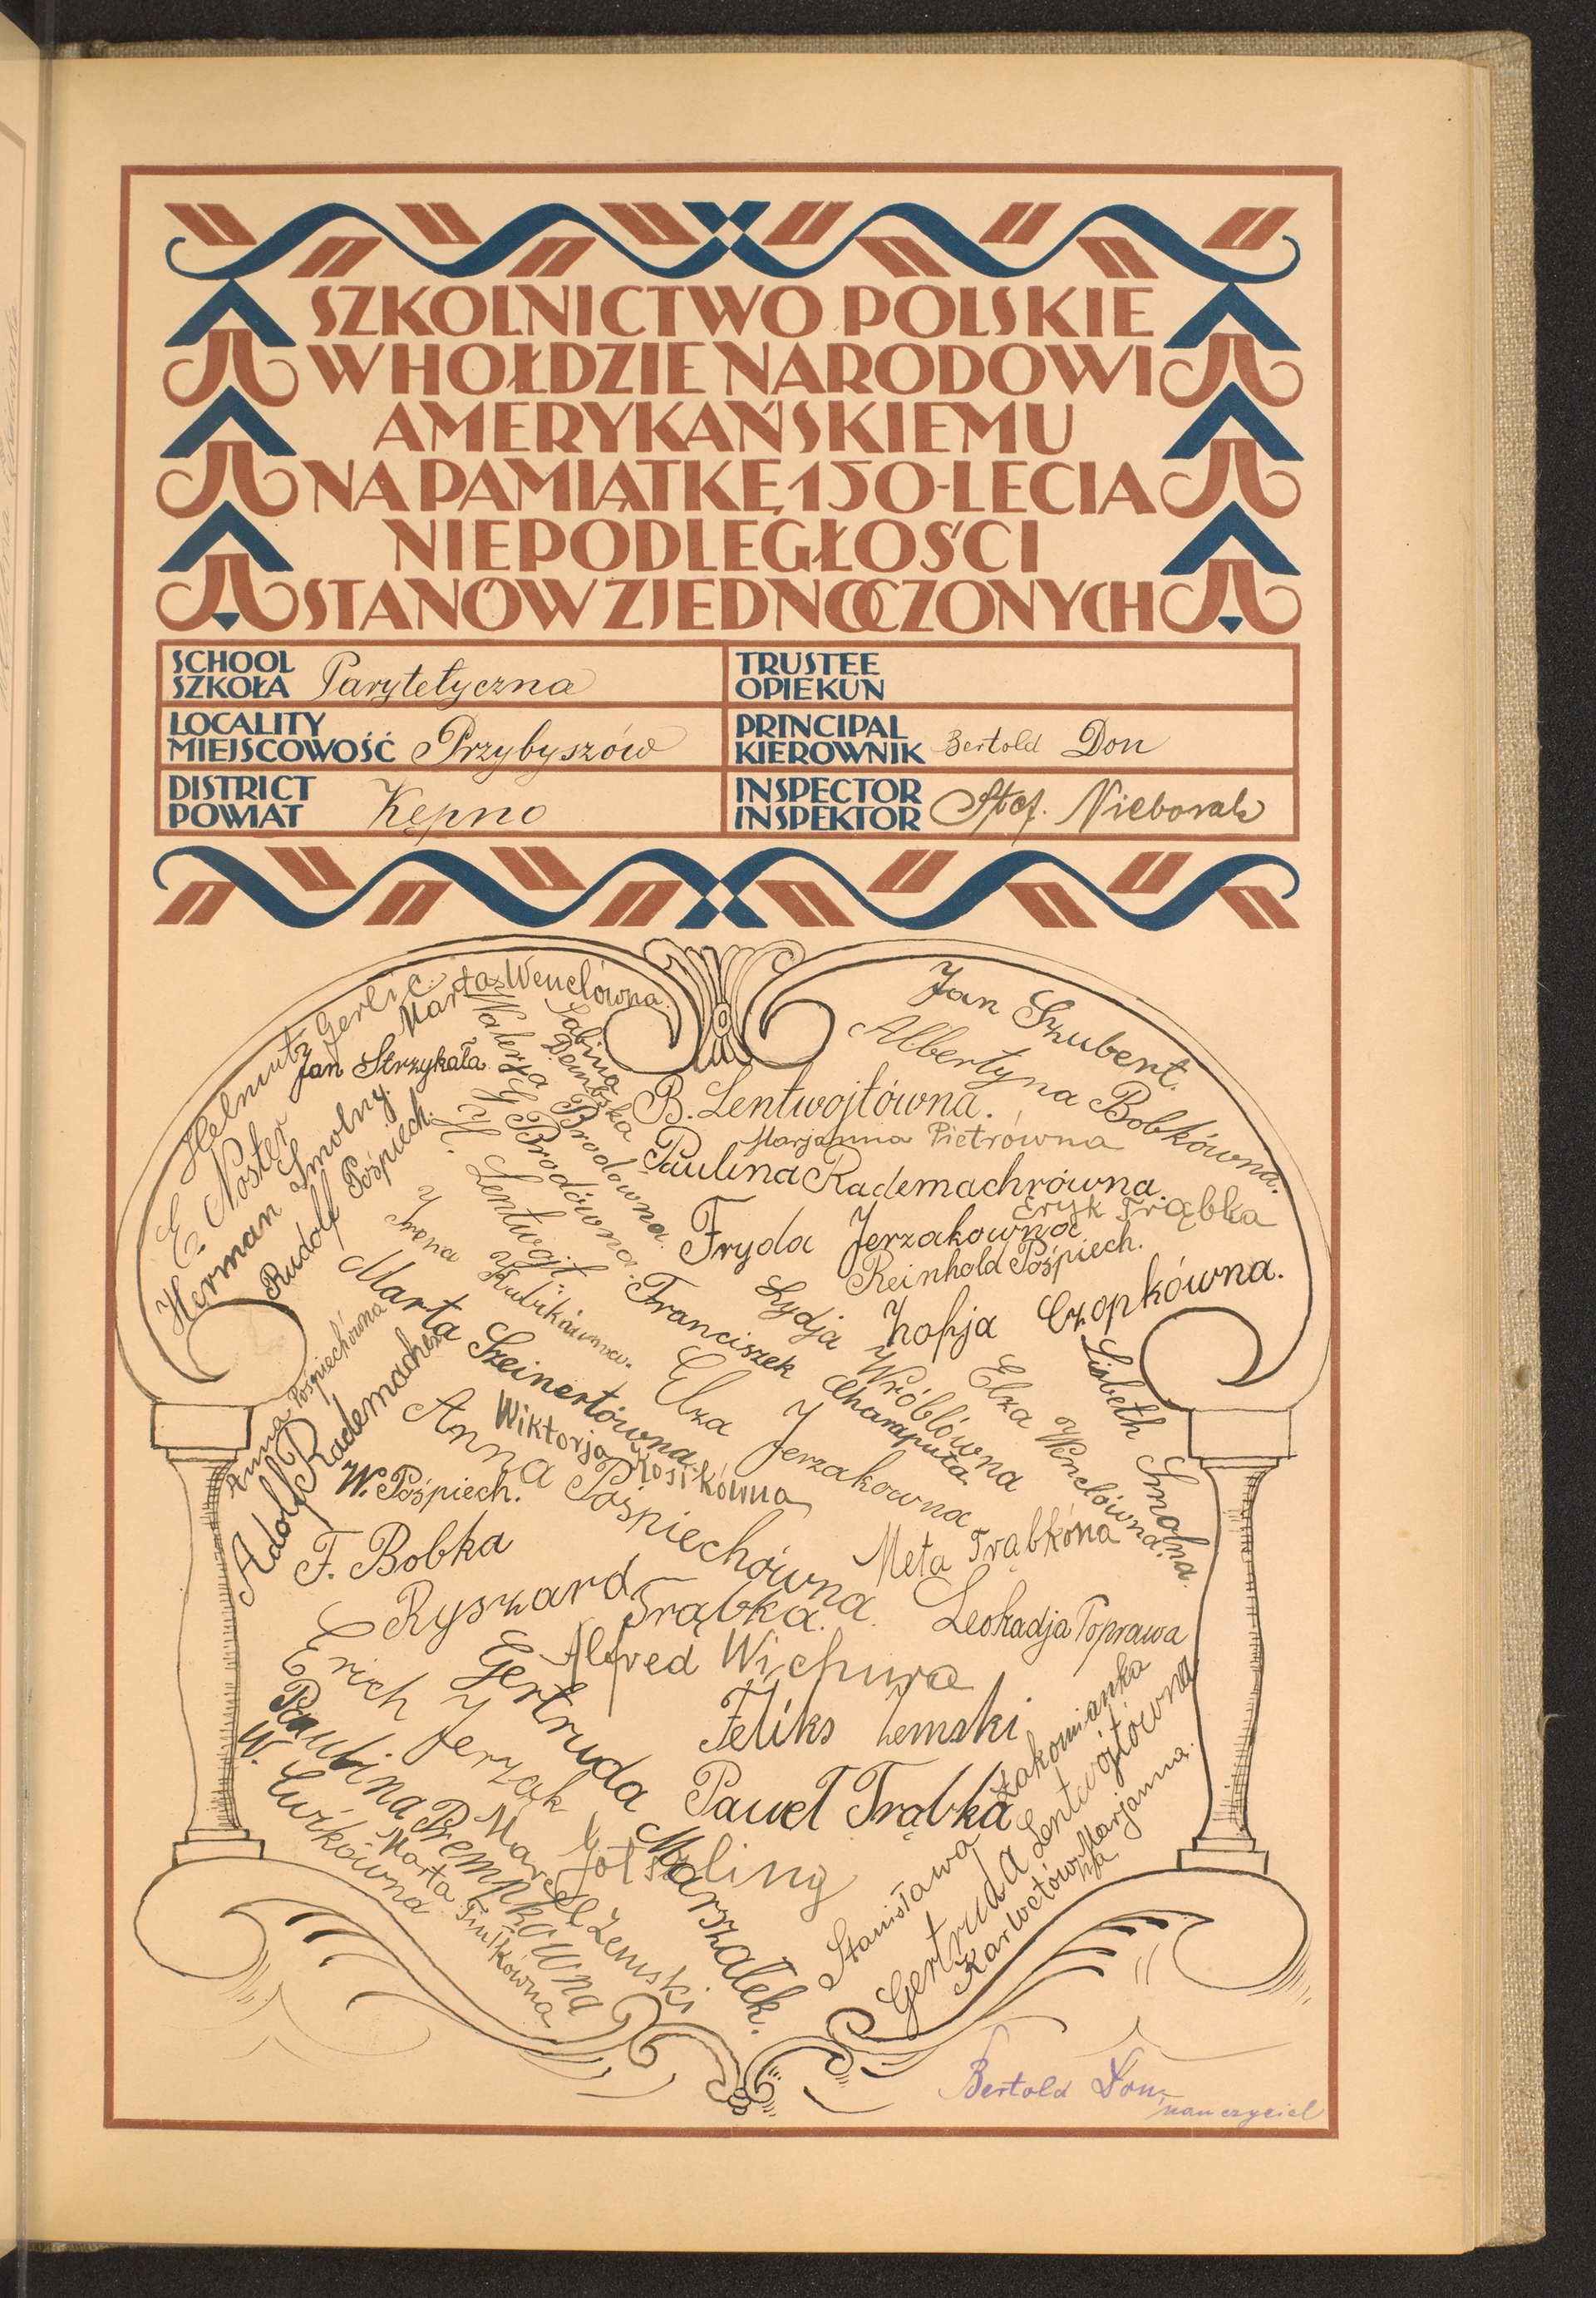 SZKOLNICTWO POLSKIE
W HOŁDZIE NARODOWI
AMERYKAŃSKIEMU
NA PAMIĄTKĘ 150-LECIA
NIEPODLEGŁOŚCI
STANÓW ZJEDNOCZONYCH
SCHOOL
SZKOŁA Parytetyczna
TRUSTEE
OPIEKUN
LOCALITY
MIEJSCOWOŚĆ Przybyszów
PRINCIPAL
KIEROWNIK Bertold Don
DISTRICT
POWIAT Kępno
INSPECTOR
INSPEKTOR Stef. Nieborak
Helmutz Gerlic.
Marta Wenclówna.
Jan Strzykała.
E. Noster
Herman Smolny.
Rudolf Pośpiech.
Sabina Dembska
Walerja Brodowna.
G. Brodówna.
H. Lentwojt.
Irena Kubikówna.
Jan Szubert.
Albertyna Bobkówna.
B. Lentwojtówna.
Marjanna Pietrówna
Paulina Rademachrówna.
Eryk Trąbka
Fryda Jerzakowna
Reinhold Pośpiech.
Zofja Czopkówna.
Lydja Wróblówna
Franciszek Charaputa.
Marta Szeinertówna.
Elza Jerzakowna
Elza Wenclówna.
Lisbeth Smolna.
Anna Pośpiechówna
Adolf Rademacher
Wiktorja Kosikówna
Anna Pośpiechówna.
W. Pośpiech.
F. Bobka
Meta Trąbkóna
Ryszard Trąbka.
Leokadja Poprawa
Alfred Wichura
Erich Jerzak
Gertruda Marszałek.
Feliks Zemski
Paulina Prempkowna
Paweł Trąbka
W. Ćwikówna
Marcel Zemski
Marta
Stanisława Żakomianka
Gertruda Lentwojtówna
Karwetówna Marjanna.
Bertold Don,
nauczyciel